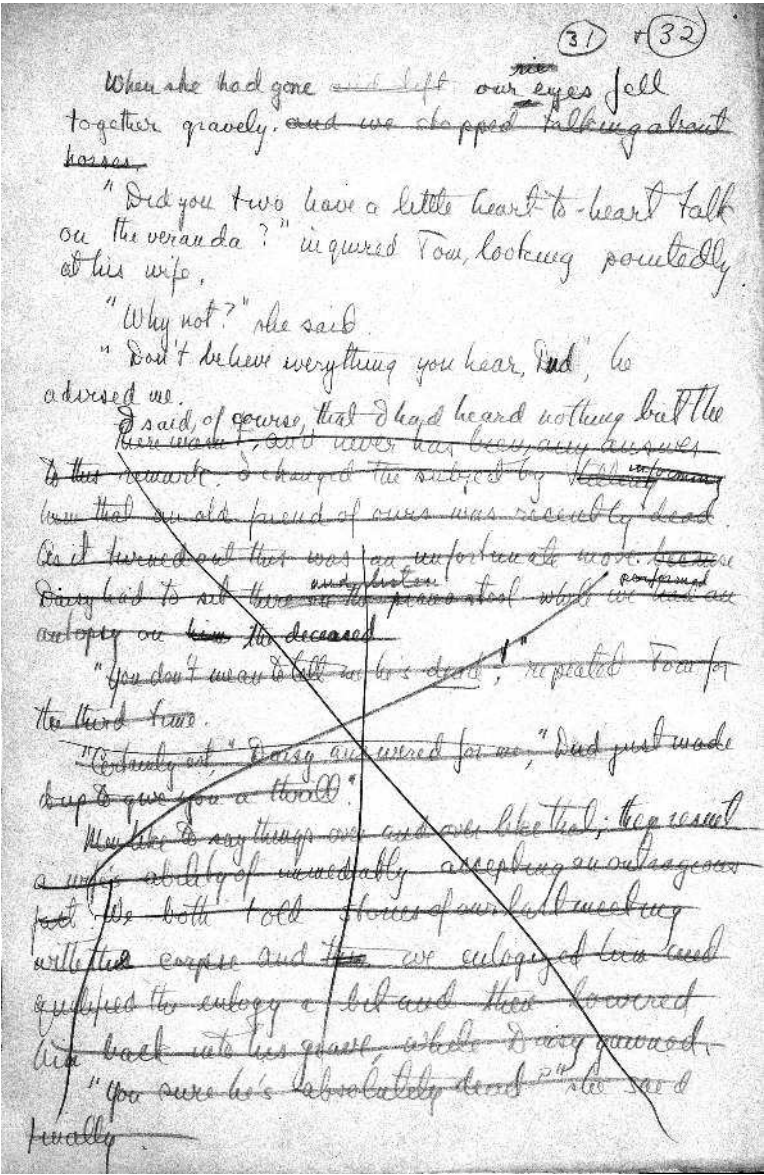 31 + 32
When she had gone and left our eyes fell
together gravely. and we stopped talking about
horses.
"Did you two have a little heart-to-heart talk
on the veranda?" inquired Tom, looking pointedly
at his wife.
"Why not?" she said.
"Don't believe everything you hear, Dud", he
advised me.
I said, of course, that I had heard nothing but the
There wasn't, and never has been, any answer
to this remark. I changed the subject by informing
him that an old friend of ours was recently dead.
As it turned out this was an unfortunate move because
Daisy had to sit there on the piano stool while we performed had an
autopsy on him the deceased
"You don't mean to tell me he's dead!" repeated Tom for
the third time.
"Certainly not," Daisy answered for me, "Dud just made
it up to give you a thrill."
Men like to say things over and over like that; they resent
a ability of immediatly accepting an outrageous
fact. We both told stories of our last meeting
with the corpse and we eulogized him and
qualified the eulogy a bit and then lowered
him back into his grave, while Daisy yawned.
"You sure he's absolutely dead?" she said
finally